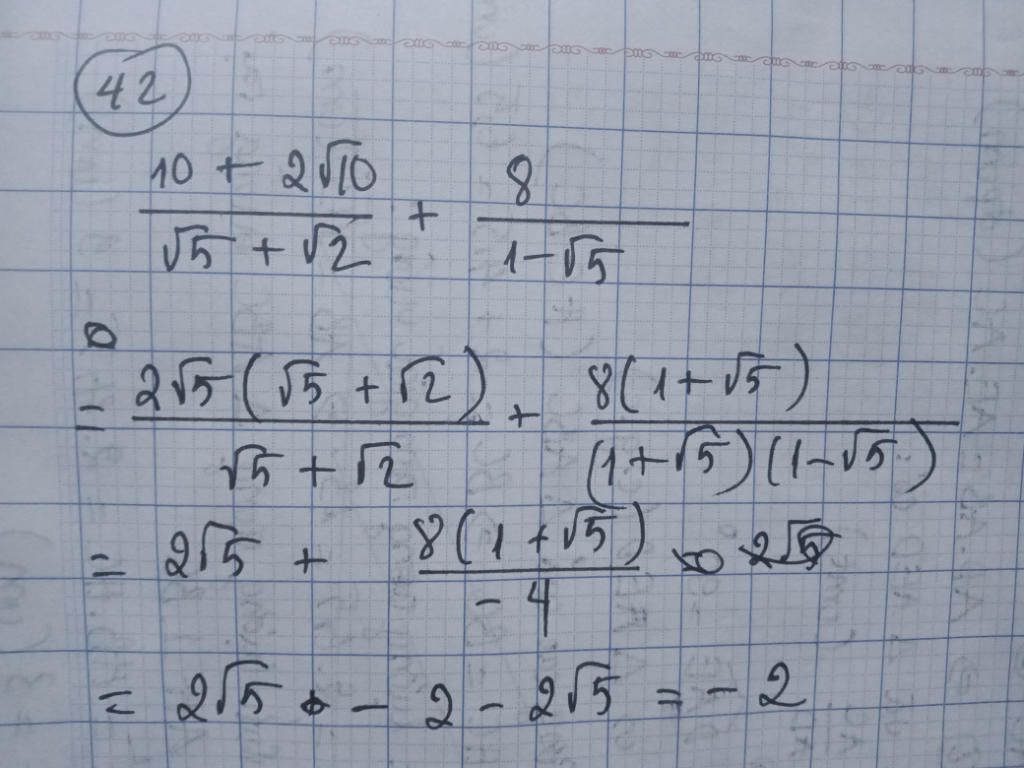 42
(10 + 2√10)/(√5 + √2) + 8/(1-√5)
= (2√5(√5 + √2))/(√5 + √2) + (8(1+√5))/((1+√5)(1-√5))
= 2√5 + (8(1+√5))/(-4)
= 2√5 - 2 - 2√5 = -2